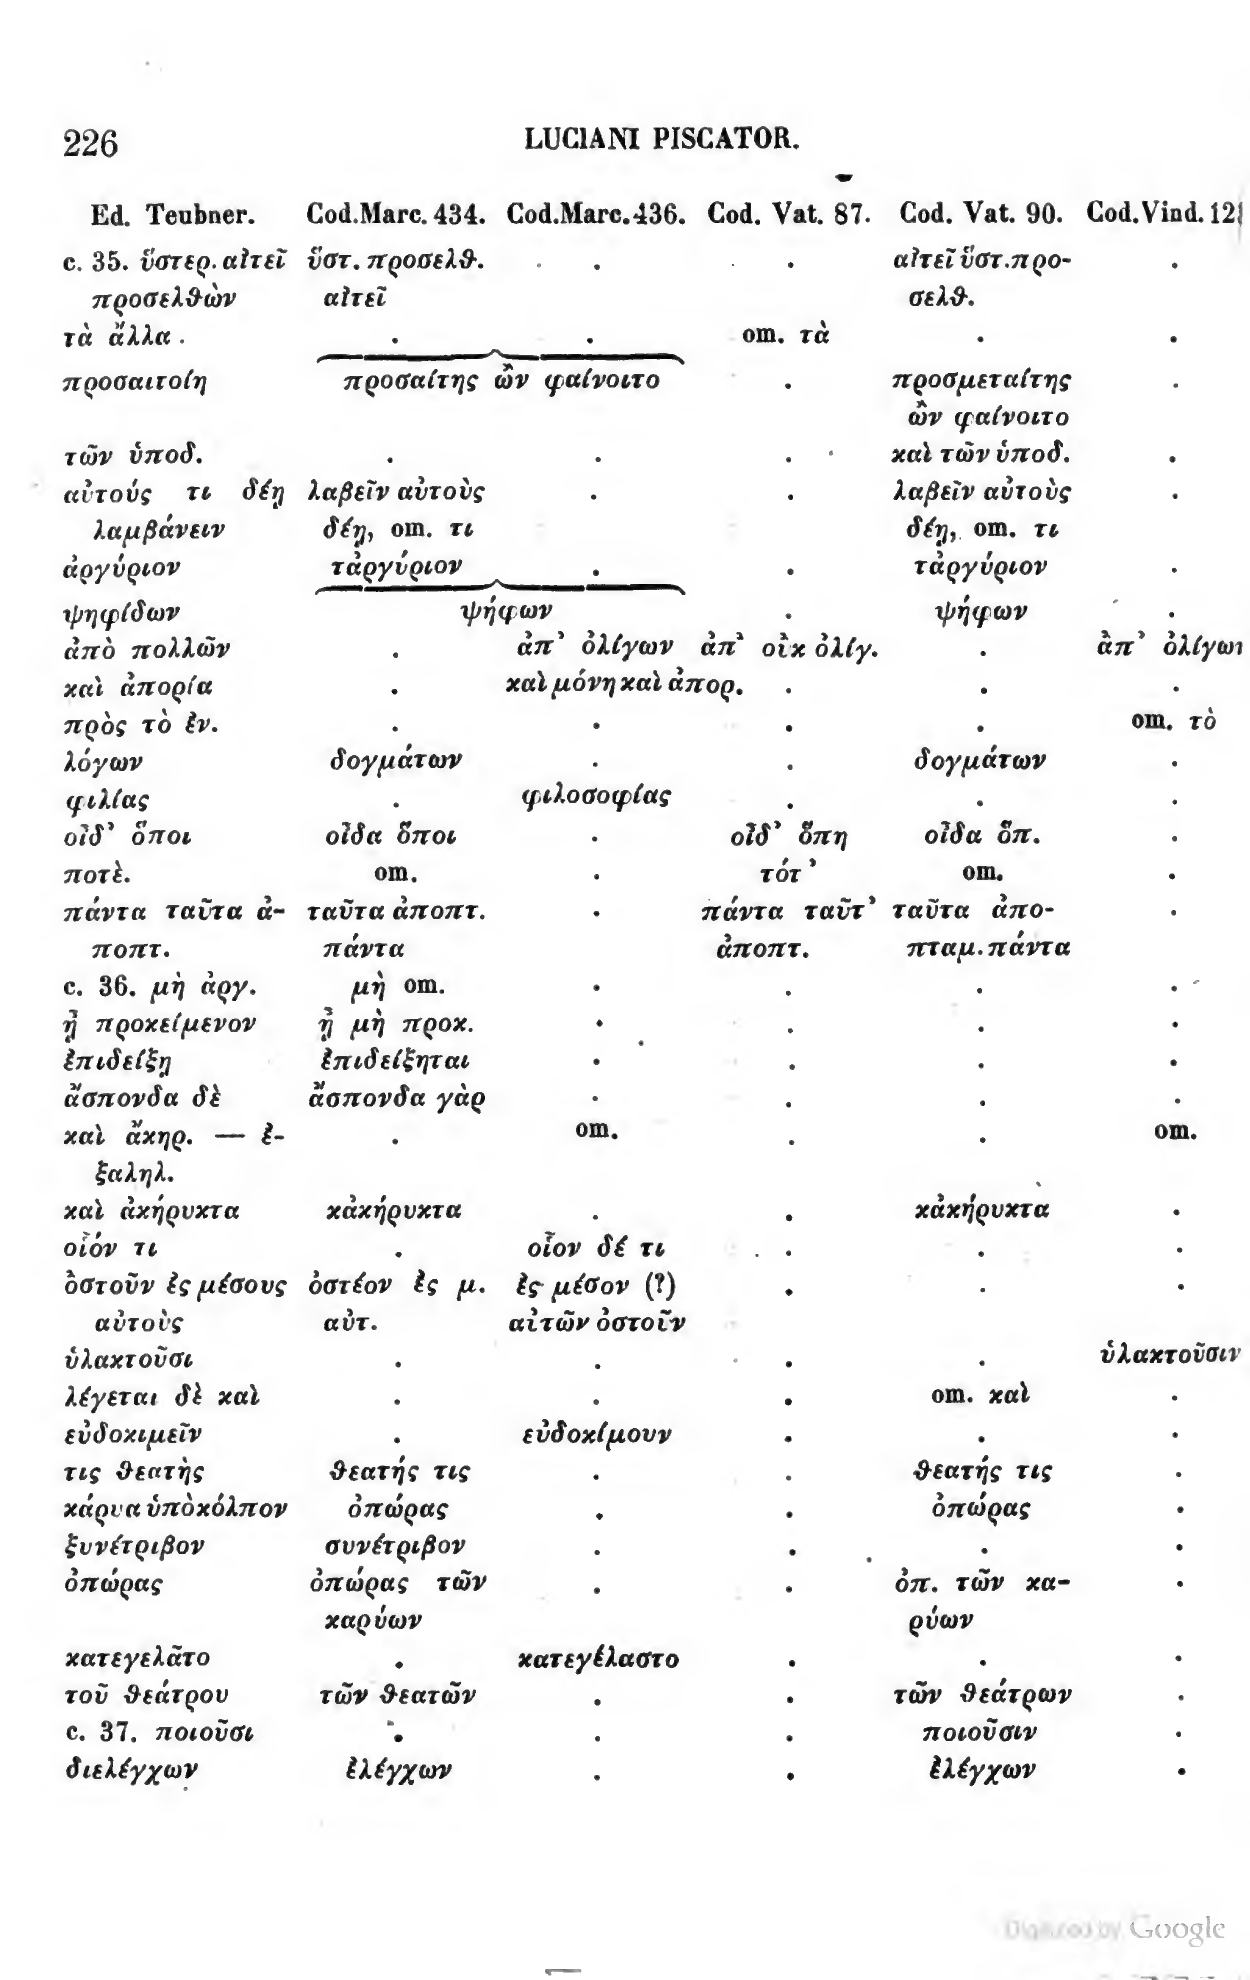 226 LUCIANI PISCATOR.
Ed. Teubner. Cod.Marc. 434. Cod.Marc. 436. Cod. Vat. 87. Cod. Vat. 90. Cod.Vind. 12
c. 35. ὕστερ. αἰτεῖ ὕστ. προσελθ. . . αἰτεῖ ὕστ. προ- .
προσελθὼν αἰτεῖ σελθ.
τὰ ἄλλα . . . om. τὰ . .
προσαιτοίη προσαίτης ὢν φαίνοιτο . προσμεταίτης .
ὢν φαίνοιτο
τῶν ὑποδ. . . . καὶ τῶν ὑποδ. .
αὐτούς τι δέῃ λαβεῖν αὐτοὺς . . λαβεῖν αὐτοὺς .
λαμβάνειν δέῃ, om. τι δέῃ, om. τι
ἀργύριον τἀργύριον . . τἀργύριον .
ψηφίδων ψήφων . ψήφων .
ἀπὸ πολλῶν . ἀπ' ὀλίγων ἀπ' οὐκ ὀλίγ. . ἀπ' ὀλίγων
καὶ ἀπορία . καὶ μόνη καὶ ἀπορ. . . .
πρὸς τὸ ἐν. . . . . om. τὸ
λόγων δογμάτων . . δογμάτων .
φιλίας . φιλοσοφίας . . .
οἶδ' ὅποι οἶδα ὅποι . οἶδ' ὅπη οἶδα ὅπ. .
ποτὲ. om. . τότ' om. .
πάντα ταῦτα ἀ- ταῦτα ἀποπτ. . πάντα ταῦτ' ταῦτα ἀπο- .
ποπτ. πάντα ἀποπτ. πταμ. πάντα
c. 36. μὴ ἀργ. μὴ om. . . . .
ᾖ προκείμενον ᾖ μὴ προκ. . . . .
ἐπιδείξῃ ἐπιδείξηται . . . .
ἄσπονδα δὲ ἄσπονδα γὰρ . . . .
καὶ ἄκηρ. — ἐ- . om. . . om.
ξαληλ.
καὶ ἀκήρυκτα κἀκήρυκτα . . κἀκήρυκτα .
οἷόν τι . οἷον δέ τι . . .
ὀστοῦν ἐς μέσους ὀστέον ἐς μ. ἐς μέσον (?) . . .
αὐτοὺς αὐτ. αὐτῶν ὀστοῦν
ὑλακτοῦσι . . . . ὑλακτοῦσιν
λέγεται δὲ καὶ . . . om. καὶ .
εὐδοκιμεῖν . εὐδοκίμουν . . .
τις θεατὴς θεατής τις . . θεατής τις .
κάρυα ὑπὸ κόλπον ὀπώρας . . ὀπώρας .
ξυνέτριβον συνέτριβον . . . .
ὀπώρας ὀπώρας τῶν . . ὀπ. τῶν κα- .
καρύων ρύων
κατεγελᾶτο . κατεγέλαστο . . .
τοῦ θεάτρου τῶν θεατῶν . . τῶν θεάτρων .
c. 37. ποιοῦσι . . . ποιοῦσιν .
διελέγχων ἐλέγχων . . ἐλέγχων .
Digitized by Google